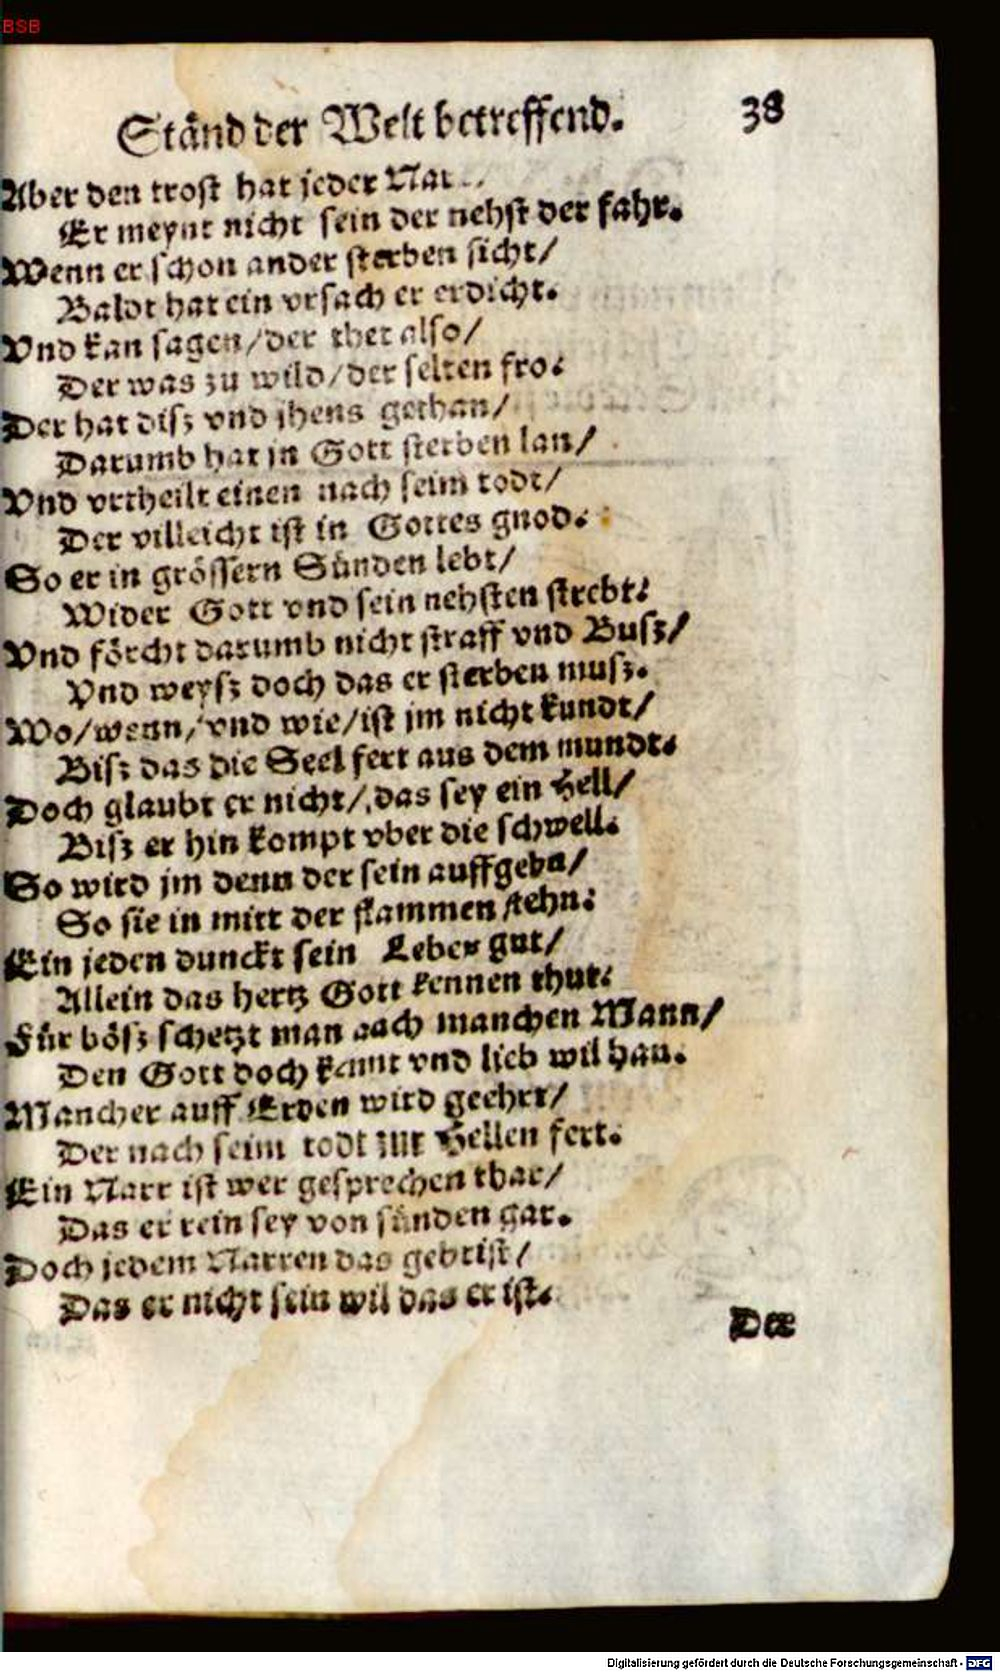 BSB
Ständ der Welt betreffend. 38
Aber den trost hat jeder
Er meynt nicht sein der nehst der fahr.
Wenn er schon ander sterben sicht/
Baldt hat ein vrsach er erdicht.
Vnd kan sagen/der thet also/
Der was zu wild/der selten fro.
Der hat disz vnd jhens gethan/
Darumb hat jn Gott sterben lan/
Vnd vrtheilt einen nach seim todt/
Der villeicht ist in Gottes gnod.
So er in grössern Sünden lebt/
Wider Gott vnd sein nehsten strebt.
Vnd förcht darumb nicht straff vnd Busz/
Vnd weysz doch das er sterben musz.
Wo/wenn/vnd wie/ist jm nicht kundt/
Bisz das die Seel fert aus dem mundt.
Doch glaubt er nicht/das sey ein Hell/
Bisz er hin kompt vber die schwell.
So wird jm denn der sein auffgebn/
So sie in mitt der flammen stehn.
Ein jeden dunckt sein Leben gut/
Allein das hertz Gott kennen thut.
Für bösz schetzt man auch manchen Mann/
Den Gott doch kennt vnd lieb wil han.
Mancher auff Erden wird geehrt/
Der nach seim todt zur Hellen fert.
Ein Narr ist wer gesprechen thar/
Das er rein sey von sünden gar.
Doch jedem Narren das gebrist/
Das er nicht sein wil das er ist.
Der
Digitalisierung gefördert durch die Deutsche Forschungsgemeinschaft - DFG